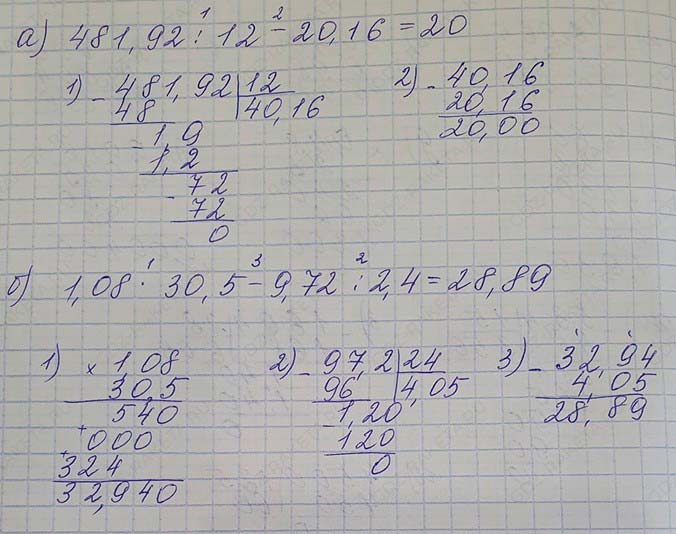 а) 481,92 : 12 - 20,16 = 20
1 2
1) - 481,92 | 12
48 | 40,16
- 1,9
1,2
- 72
72
0
2) - 40,16
20,16
20,00
б) 1,08 · 30,5 - 9,72 : 2,4 = 28,89
1 3 2
1) × 1,08
30,5
540
+ 000
+ 324
32,940
2) - 97,2 | 24
96 | 4,05
- 1,20
120
0
3) - 32,94
4,05
28,89